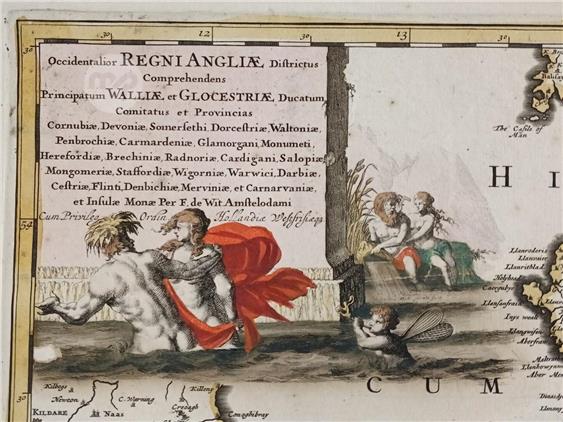 12
13
30
30
Occidentalior REGNI ANGLIÆ, Districtus
Comprehendens
Principatum WALLIÆ et GLOCESTRIÆ, Ducatum
Comitatus et Provincias
Cornubiæ, Devoniæ, Somersethi, Dorcestriæ, Waltoniæ,
Penbrochiæ, Carmardeniæ, Glamorgani, Monumeti,
Herefordiæ, Brechiniæ, Radnoriæ, Cardigani, Salopiæ,
Mongomeriæ, Staffordiæ, Wigorniæ, Warwici, Darbiæ,
Cestriæ, Flinti, Denbichiæ, Merviniæ, et Carnarvaniæ,
et Insulæ Monæ Per F. de Wit Amstelodami
Cum Privileg. Ordin Hollandiæ Westfrisiæq3
54
The Castle of
Man
H I
Llanroderis
Llanvaier
Llanrithlad
Caergubye
Llansanfraid
Inys weall
Llangwisen
Aberfraw
Llanbowyan
Aber Men
C U M
Kilboge
Newton
C. Warning
Killeny
Creoagh
Conoghibray
KILDARE
Naas
30